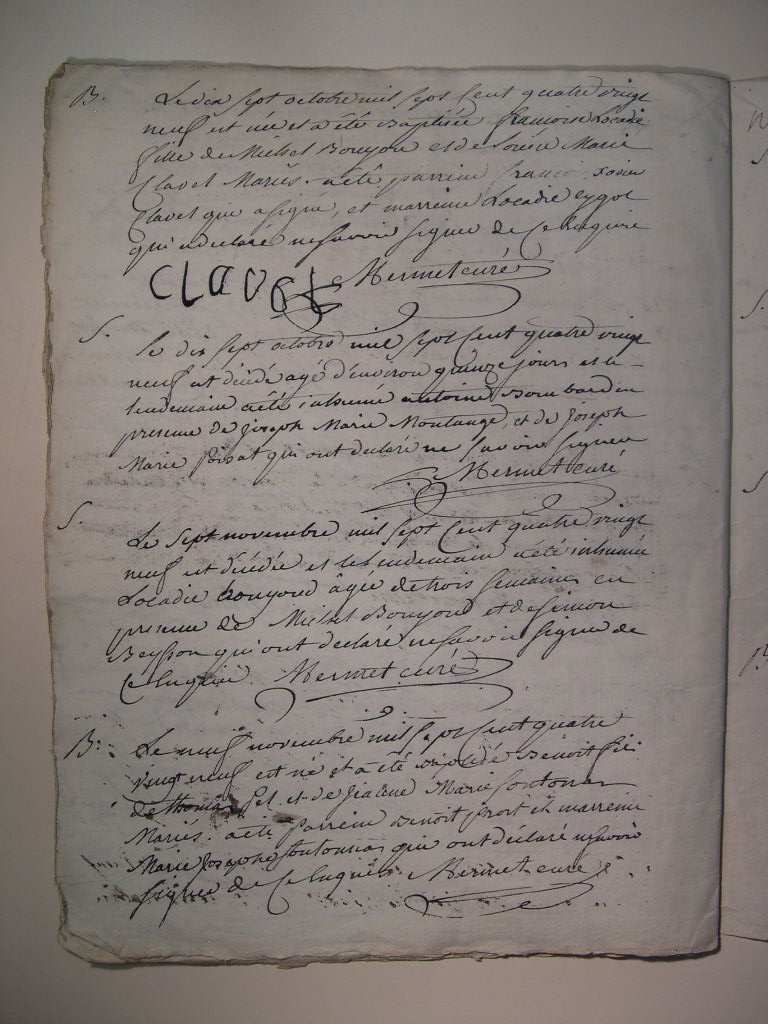 B.
Le dix sept octobre mil sept Cent quatre vingt
neuf est née et a été Baptisée francoise Locadie
fille de Michel Bouyou et de Marie
Clavel Mariés. a été parrein francoi
Clavel qui a signé, et marreine Locadie eygot
qui a declaré ne savoir signer de Ce Enquire
CLAVEL Mermet curé
S.
Le dix sept octobre mil sept Cent quatre vingt
neuf est décédé agé d'environ quinze jours et le
lendemain a été inhumé antoine Bombard en
presence de Joseph Marie Montange, et de Joseph
Marie poizat qui ont declaré ne savoir signer
Mermet curé
S.
Le sept novembre mil sept Cent quatre vingt
neuf est décédée et le lendemain a été inhumée
Locadie bouyoud âgée de trois semaines en
presence de Michel Bouyoud et de Simon
Beysson qui ont declaré ne savoir signe de
Ce Enquire Mermet curé
B.
Le neuf novembre mil sept Cent quatre
vingt neuf est né et a été Benoit fils
de thomas et de Marie fontonnas
Mariés. a été parrein Benoit et marreine
Marie Josephe fontonnas qui ont déclaré ne savoir
signer de Ce Enquis Mermet curé